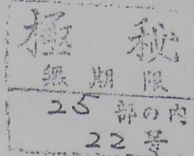 極秘
無期限
25部の内
22号